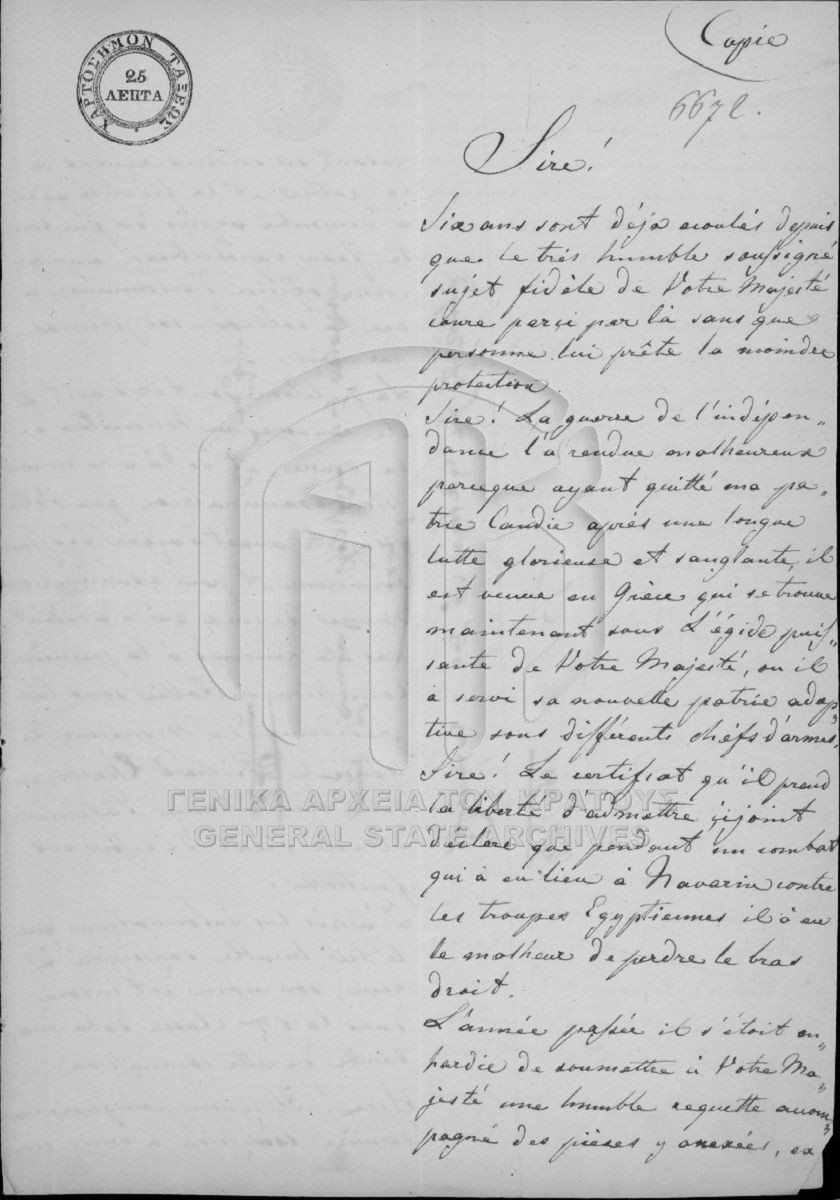 ΧΑΡΤΟΣΗΜΟΝ ΤΑΞΕΩΣ
25
ΛΕΠΤΑ
Copie
6672.
Sire!
Six ans sont déjà ecoulés depuis
que le très humble soussigné
sujet fidèle de Votre Majesté
coure parçi par là sans que
personne lui prête la moindre
protection.
Sire! La guerre de l'indépen„
dance l'a rendue malheureux
parceque ayant quitté ma pa„
trie Candie après une longue
lutte glorieuse et sanglante, il
est venue en Grèce qui se trouve
maintenant sous L'égide puis„
sante de Votre Majesté, ou il
à servi sa nouvelle patrie adap„
tive sous différents chéfs d'armes
Sire! Le certificat qu'il prend
la liberté d'admettre çijoint
declare que pendant un combat
qui à eu lieu à Navarin contre
les troupes Egyptiennes il à eu
le malheur de perdre le bras
droit.
L'année passée il s'étoit en„
hardie de soumettre à Votre Ma„
jesté une humble requette accom„
pagné des pièses y anexées, ex
ΓΕΝΙΚΑ ΑΡΧΕΙΑ ΤΟΥ ΚΡΑΤΟΥΣ
GENERAL STATE ARCHIVES